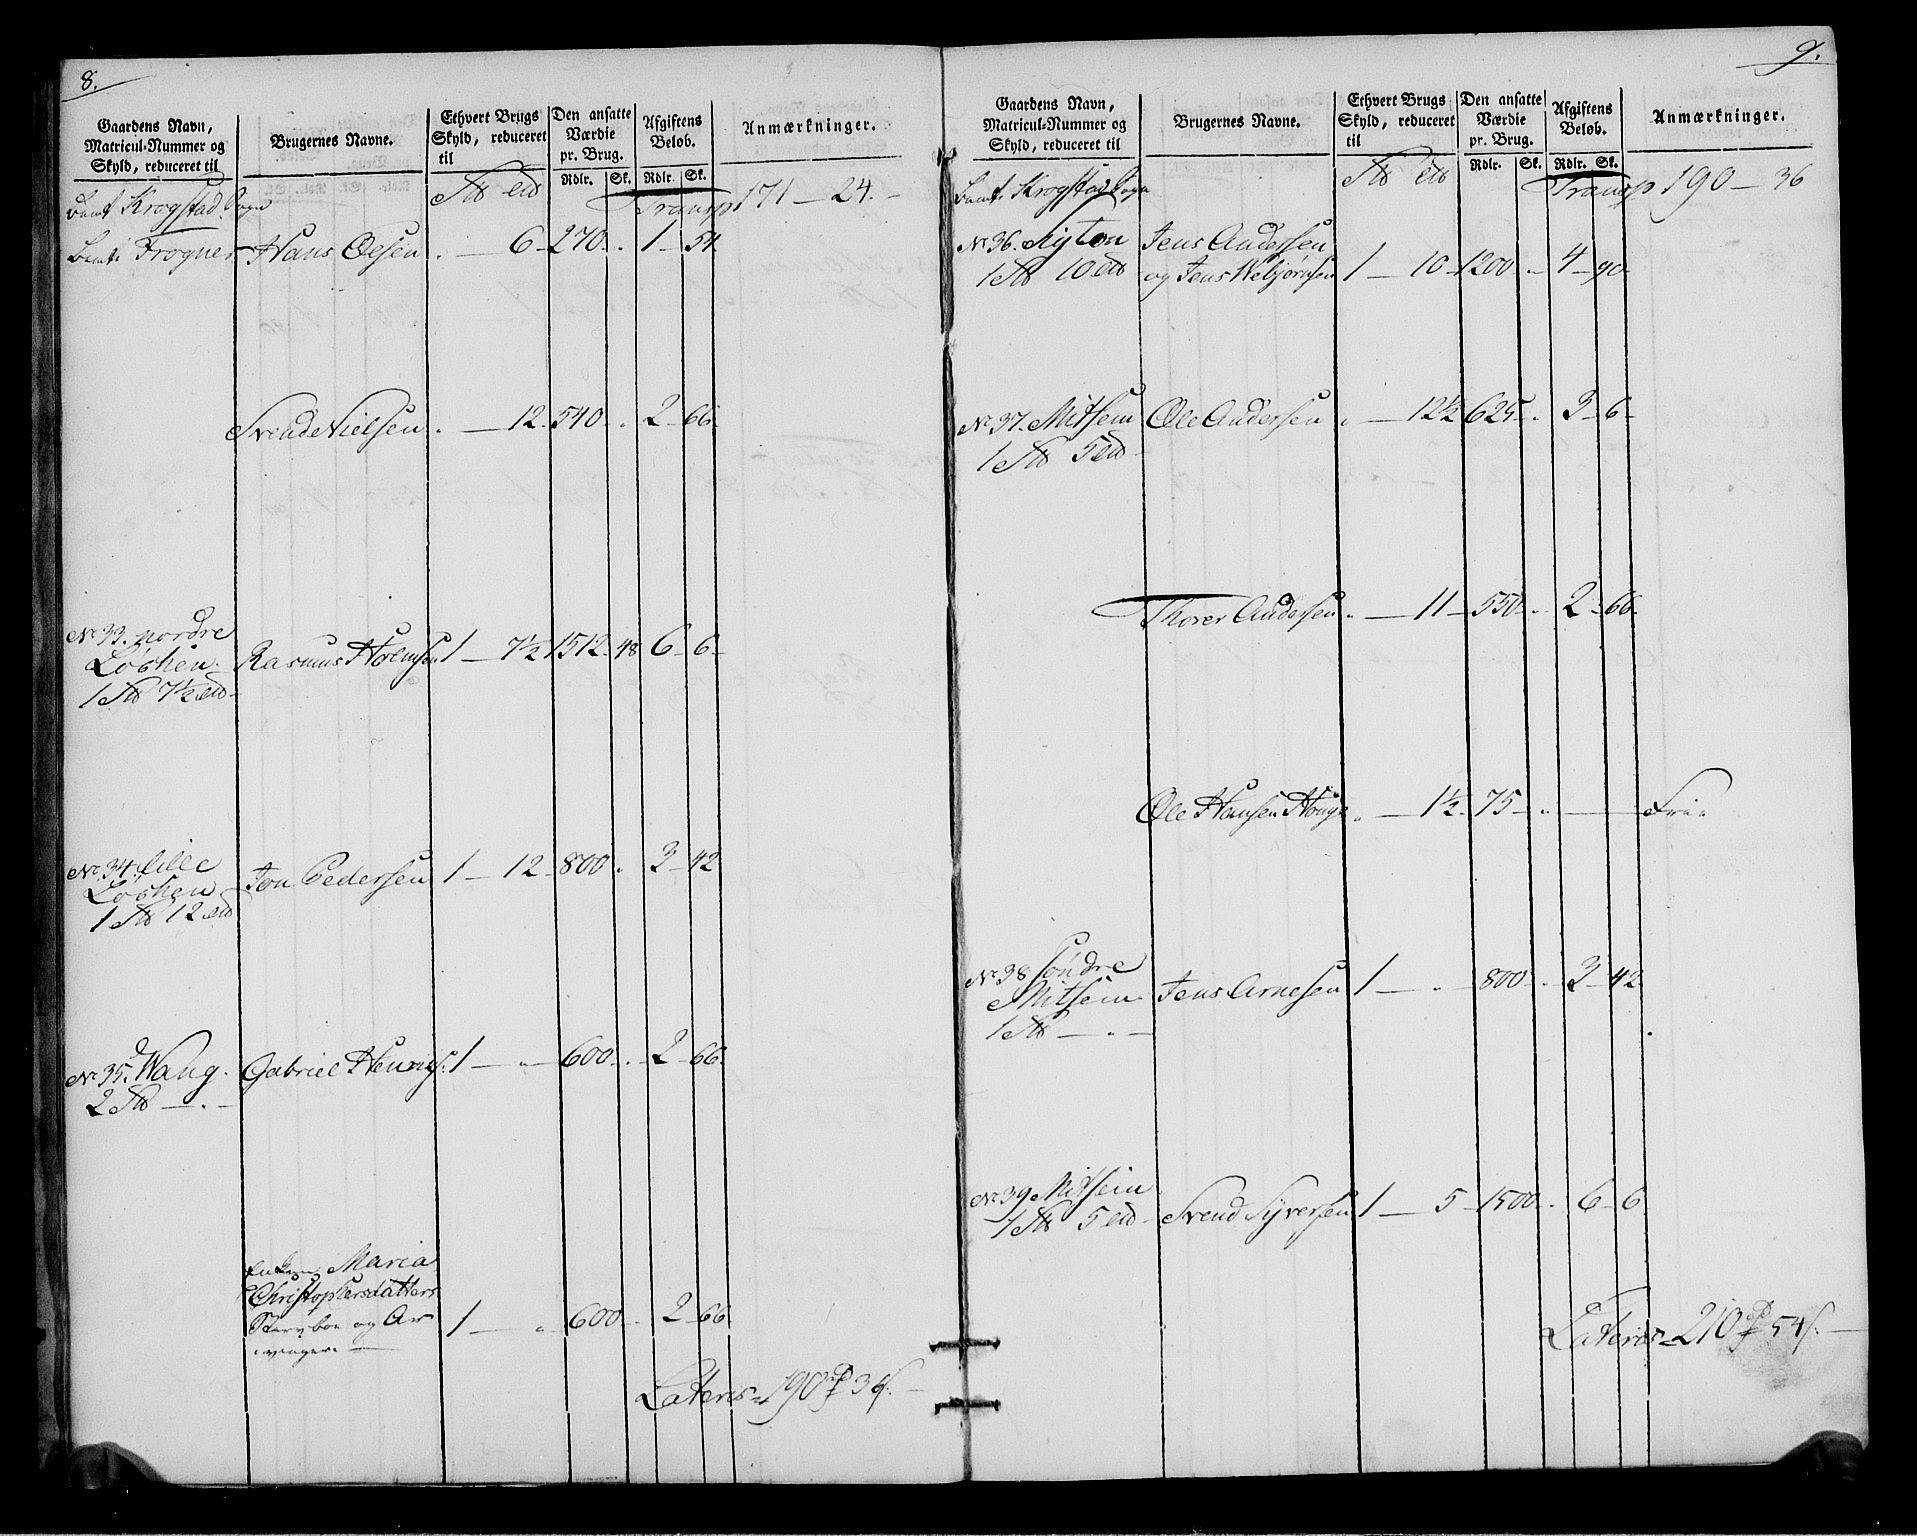 8.
Gaardens Navn, Matricul-Nummer og Skyld, reduceret til
Brugernes Navne.
Ethvert Brugs Skyld, reduceret til
Den ansatte Værdie pr. Brug.
Rdlr. Sk.
Afgiftens Beløb.
Rdlr. Sk.
Anmærkninger.
Krogstad Sogn
Transp 171 - 24.
Frogner Hans Olesen - 6 - 270 - 1 - 54
Svend Nielsen - 12 - 540 - 2 - 66
No 33. nordre
Løchen Rasmus Holmsen 1 - 7½ 1512 - 48 6 - 6
1 7½
No 34. lille
Løchen Jon Pedersen 1 - 12 - 800 - 3 - 42
1 12
No 35. Wang. Gabriel 1 - 600 - 2 - 66
2
Enken Maria
Christophersdatters
Stervboe og Ar 1 - 600 - 2 - 66
vinger
Lateris 190 36
9.
Gaardens Navn, Matricul-Nummer og Skyld, reduceret til
Brugernes Navne.
Ethvert Brugs Skyld, reduceret til
Den ansatte Værdie pr. Brug.
Rdlr. Sk.
Afgiftens Beløb.
Rdlr. Sk.
Anmærkninger.
Krogstad Sogn
Transp 190 - 36
No 36. Jens Andersen
1 10 og Jens 1 - 10 - 1200 - 4 - 90
No 37. Mitsem Ole Andersen - 12½ 625 - 3 - 6
1 5
Thorer Andersen - 11 - 550 - 2 - 66
Ole Hansen - 1½ 75 - Frie
No 38 søndre
Mitsem Jens Arnesen 1 - 800 - 3 - 42
1
No 39 Mitsem
1 5 Svend Syversen 1 - 5 - 1500 - 6 - 6
Lateris 210 54